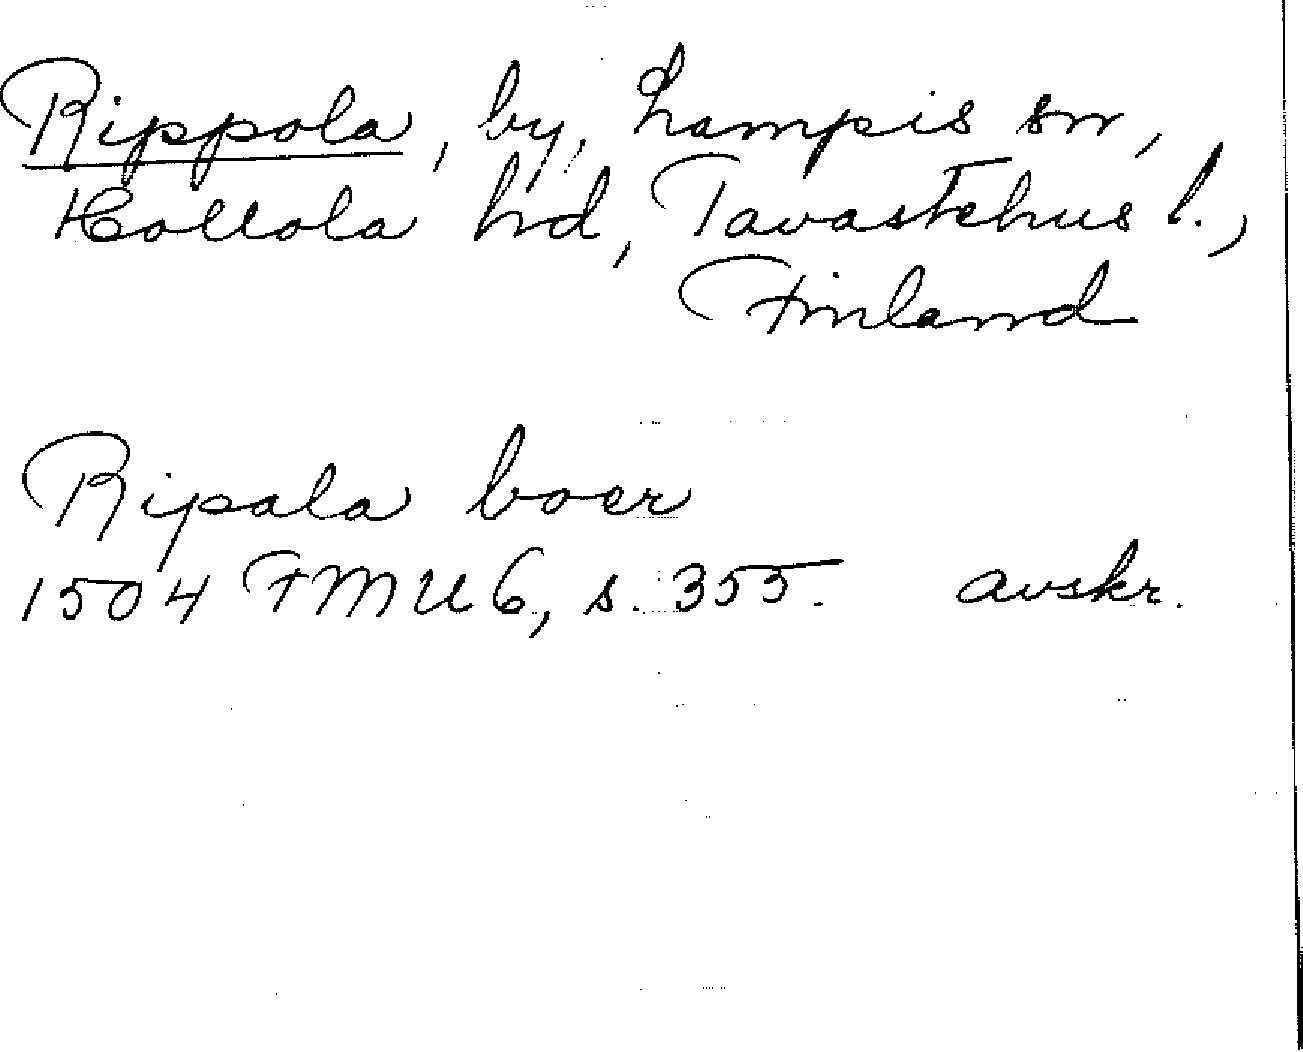 Rippola, by, Lampis sn,
Hollola hd, Tavastehus l.,
Finland
Ripala boer
1504 FMU 6, s. 355. avskr.